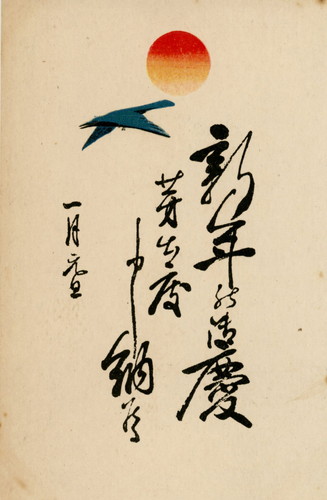 新年の御慶
芽出度
申納候
一月元旦